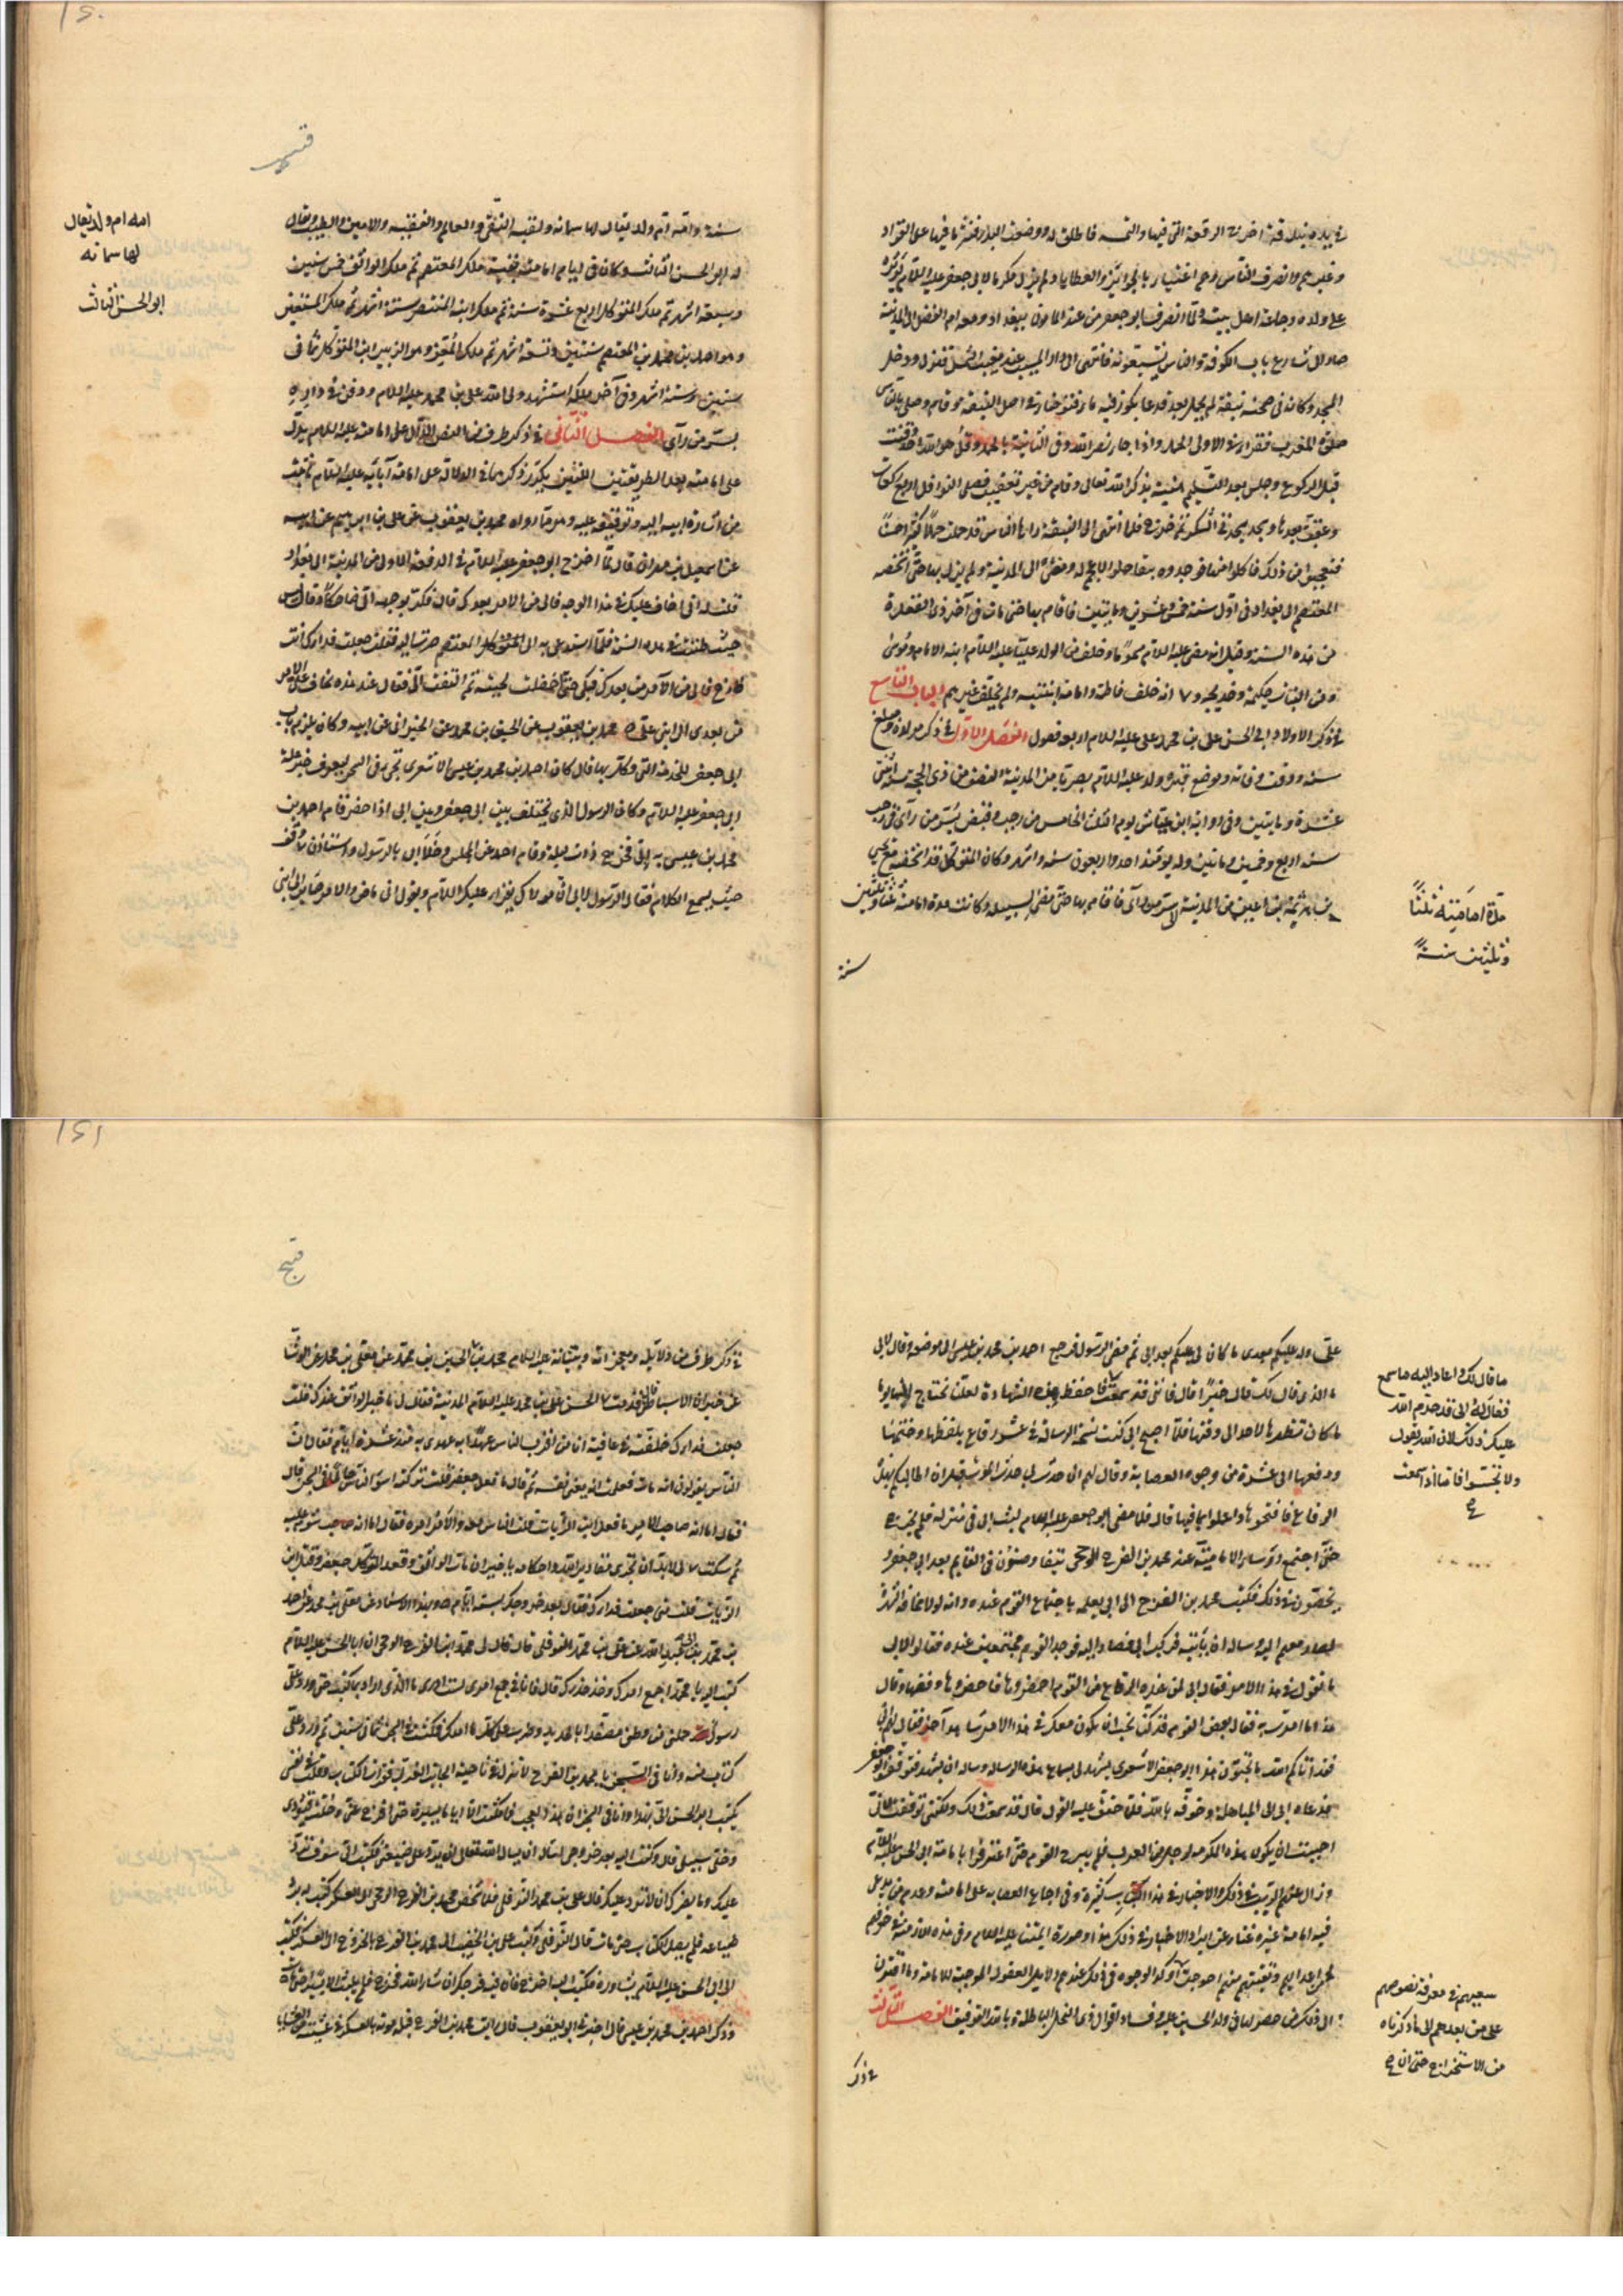 في يده بندقة اخرج الرقعة التي فيها والتمسه فاطلق له ووضعت البدر فنثر ما فيها على القواد
وغيرهم وانصرف الناس وهم اغنياء بالجوائز والعطايا ولم يزل مكرما لابي جعفر عليه السلام يؤثره
على ولده وجماعة اهل بيته ولما انصرف ابو جعفر من عند المامون ببغداد ومعه ام الفضل الى المدينة
صار الى شارع باب الكوفة والناس يشيعونه فانتهى الى دار المسيب عند مغيب الشمس فنزل ودخل
المسجد وكان في صحنه نبقة لم يحمل بعد فدعا بكوز فيه ماء فتوضأ في اصل النبقة وقام وصلى بالناس
صلوة المغرب فقرا في الاولى الحمد واذا جاء نصر الله وفي الثانية بالحمد وقل هو الله احد وقنت
قبل الركوع وجلس بعد التسليم هنيئة يذكر الله تعالى وقام من غير تعقيب فصلى النوافل اربع ركعات
وعقب بعدها وسجد سجدتي الشكر ثم خرج فلما انتهى الى النبقة راها الناس قد حملت حملا كثيرا حسنا
فتعجبوا من ذلك فاكلوا منها فوجدوه نبقا حلوا لا عجم له ومضى الى المدينة ولم يزل بها حتى اشخصه
المعتصم الى بغداد في اول سنة خمس وعشرين ومايتين فاقام بها حتى مات في آخر ذي القعدة
من هذه السنة وقيل انه مضى عليه السلام مسموما وخلف من الولد عليا عليه السلام ابنه الامام وموسى
ومن البنات حكيمة وخديجة و انه خلف فاطمة وامامة ابنتيه ولم يخلف غيرهم الباب التاسع
في ذكر الامام ابي الحسن علي بن محمد عليه السلام اربعة فصول الفصل الاول في ذكر مولده ومبلغ
سنه ووقت وفاته وموضع قبره ولد عليه السلام بصريا من المدينة للنصف من ذي الحجة سنة اثنتي
عشرة ومايتين وفي رواية ابن عياش يوم الثلث الخامس من رجب وقبض بسر من رآى في رجب
سنة اربع وخمسين ومايتين وله يومئذ احد واربعون سنة واشهر وكان المتوكل قد اشخصه مع يحيى
بن هرثمة بن اعين من المدينة الى سر من رآى فاقام بها حتى مضى لسبيله وكانت مدة امامته ثلثا وثلثين
سنة
مدة امامته ثلثا
وثلثين سنة
سنة وامه ام ولد يقال لها سمانة ولقبه النقي والعالم والفقيه والامين والطيب ويقال
له ابو الحسن الثالث وكان في ايام امامته بقية ملك المعتصم ثم ملك الواثق خمس سنين
وسبعة اشهر ثم ملك المتوكل اربع عشرة سنة ثم ملك ابنه المنتصر ستة اشهر ثم ملك المستعين
وهو احمد بن محمد بن المعتصم سنتين وتسعة اشهر ثم ملك المعتز وهو الزبير ابن المتوكل ثماني
سنين وستة اشهر وفي آخر ملكه استشهد ولي الله علي بن محمد عليه السلام ودفن في داره
بسر من رآى الفصل الثاني في ذكر طرف من النص الدال على امامته عليه السلام يدل
على امامته بعد الطريقتين اللتين تكرر ذكرهما في الدلالة على امامة آبائه عليه السلام ما ثبت
من اشارة ابيه اليه وتوقيفه عليه وهو ما رواه محمد بن يعقوب عن علي بن ابرهيم عن ابيه
عن اسمعيل بن مهران قال لما اخرج ابو جعفر عليه السلام في الدفعة الاولى من المدينة الى بغداد
قلت له اني اخاف عليك في هذا الوجه فالى من الامر بعدك قال فكر بوجهه الي ضاحكا وقال ليس
حيث ظننت في هذه السنة فلما استدعي به الى المعتصم صرت اليه فقلت جعلت فداك انت
خارج فالى من الامر من بعدك فبكى حتى اخضلت لحيته ثم التفت الي فقال عند هذه يخاف علي الامر
من بعدي الى ابني علي محمد بن يعقوب عن الحسين بن محمد عن الخيراني عن ابيه وكان يلزم باب
ابي جعفر للخدمة التي وكل بها قال كان احمد بن محمد بن عيسى الاشعري يجيء في السحر ليعرف خبر علة
ابي جعفر عليه السلام وكان الرسول الذي يختلف بين ابي جعفر وبين ابي اذا حضر قام احمد بن
محمد بن عيسى فخرج ذات ليلة وقام احمد عن المجلس وخلا ابي بالرسول واستدار فوقف
حيث يسمع الكلام فقال الرسول لابي ان مولاك يقرأ عليك السلام ويقول اني ماض والامر صاير الى ابني
امه ام ولد يقال
لها سمانه
ابو الحسن الثالث
علي وله عليكم بعدي ما كان لي عليكم بعد ابي ثم مضى الرسول فرجع احمد بن محمد بن عيسى الى موضعه وقال لابي
ما الذي قال لك قال خيرا قال فانني قد سمعت فاحفظ هذه الشهادة لعلنا نحتاج اليها يوما
ما كان تظهرها لاحد الى وقتها فلما اصبح ابي كتب نسخة الرسالة في عشر رقاع بلفظها وختمها
ودفعها الى عشرة من وجوه العصابة وقال لهم ان حدث بي حدث الموت قبل ان اطالبكم بهذه
الرقاع فافتحوها واعملوا بما فيها قال فلما مضى ابو جعفر عليه السلام لبث ابي في منزله فلم يخرج
حتى اجتمع رؤساء الامامية عند محمد بن الفرج الرخجي يتفاوضون في القايم بعد ابي جعفر و
يخوضون في ذلك فكتب محمد بن الفرج الى ابي يعلمه باجتماع القوم عنده وانه لولا مخافة الشهرة
لصار معهم اليه وساله ان ياتيه فركب ابي فصار اليه فوجد القوم مجتمعين عنده فقالوا لابي
ما تقول في هذا الامر فقال ابي لمن عنده الرقاع من القوم احضروها فاحضروها وفضها وقال
هذا ما امرت به فقال بعض القوم قد كنا نحب ان يكون معك في هذا الامر شاهد آخر فقال لهم ابي
قد اتاكم الله ما تحبون هذا ابو جعفر الاشعري يشهد لي بسماع هذه الرسالة وساله ان يشهد فتوقف ابو جعفر
فدعاه ابي الى المباهلة وخوفه بالله فلما حقق عليه القول قال قد سمعت ذلك ولكنني توقفت لاني
احببت ان يكون هذه المكرمة لرجل من العرب فلم يبرح القوم حتى اعترفوا بامامة ابي الحسن عليه السلام
وزال عنهم الريب في ذلك والاخبار في هذا الباب كثيرة وفي اجماع العصابة على امامته وعدم من يدعي
فيه امامة غيره غناء عن ايراد الاخبار في ذلك هذا وصورة ايمتنا عليه السلام وفي هذه الازمنة في خوفهم
من اعدائهم وتقيتهم منهم احوجت اوكد الوجوه في ذلك عندهم دلايل العقول الموجبة للامامة وما اقترن
الى ذلك من حصولها في ولد الحسين عليه وفساد اقوال ذوي النحل الباطلة وبالله التوفيق الفصل الثالث
في ذكر
ما قال لك واعاد اليه ما سمع
فقال له ابي قد حرم الله
عليك ذلك لان الله يقول
ولا تجسسوا فاما اذا سمعت
سعيهم في معرفة نصوصهم
على من بعدهم الى ما ذكرناه
من الاستخراج حتى ان
في ذكر طرف من دلايله ومعجزاته وبيناته عليه السلام محمد بن الحسين بن محمد عن معلى بن محمد عن الوشا
عن خيران الاسباطي قال قدمت على ابي الحسن علي بن محمد عليه السلام المدينة فقال لي ما خبر الواثق عندك قلت
جعلت فداك خلفته في عافية انا من اقرب الناس عهدا به عهدي به منذ عشرة ايام فقال ان
الناس يقولون انه مات فعلمت انه يعني نفسه ثم قال ما فعل جعفر قلت تركته اسوأ الناس حالا في السجن قال
فقال اما انه صاحب الامر ما فعل ابن الزيات قلت الناس معه والامر امره فقال اما انه شوم عليه
ثم سكت وقال لا بد ان تجري مقادير الله واحكامه يا خيران مات الواثق وقعد المتوكل جعفر وقتل ابن
الزيات قلت متى جعلت فداك فقال بعد خروجك بستة ايام وبهذا الاسناد عن معلى بن محمد عن احمد
بن محمد بن عبد الله عن علي بن محمد النوفلي قال قال لي محمد بن الفرج الرخجي ان ابا الحسن عليه السلام
كتب اليه يا محمد اجمع امرك وخذ حذرك قال فانا في جمع امري لست ادري ما الذي اراد بما كتب حتى ورد علي
رسول حملني من وطني مصفدا بالحديد وضرب على كل ما املك فمكثت في السجن ثماني سنين ثم ورد علي
كتاب منه وانا في السجن يا محمد بن الفرج لا تنزل في ناحية الجانب الغربي فقرات الكتاب وقلت في نفسي
يكتب ابو الحسن الي بهذا وانا في السجن ان هذا لعجب فما مكثت الا اياما يسيرة حتى افرج عني وحلت قيودي
وخلي سبيلي قال وكتبت اليه بعد خروجي اساله ان يسال الله تعالى ان يرد علي ضيعتي فكتب الي سوف ترد
عليك وما يضرك ان لا ترد عليك قال علي بن محمد النوفلي فلما شخص محمد بن الفرج الرخجي الى العسكر كتب له برد
ضياعه فلم يصل الكتاب حتى مات قال النوفلي وكتب علي بن الخصيب الى محمد بن الفرج بالخروج الى العسكر فكتب
الى ابي الحسن عليه السلام يشاوره فكتب اليه اخرج فان فيه فرجك ان شاء الله فخرج فلم يلبث الا يسيرا حتى مات
وذكر احمد بن محمد بن عيسى قال اخبرني ابو يعقوب قال رايت محمد بن الفرج قبل موته بالعسكر في عشية من العشايا